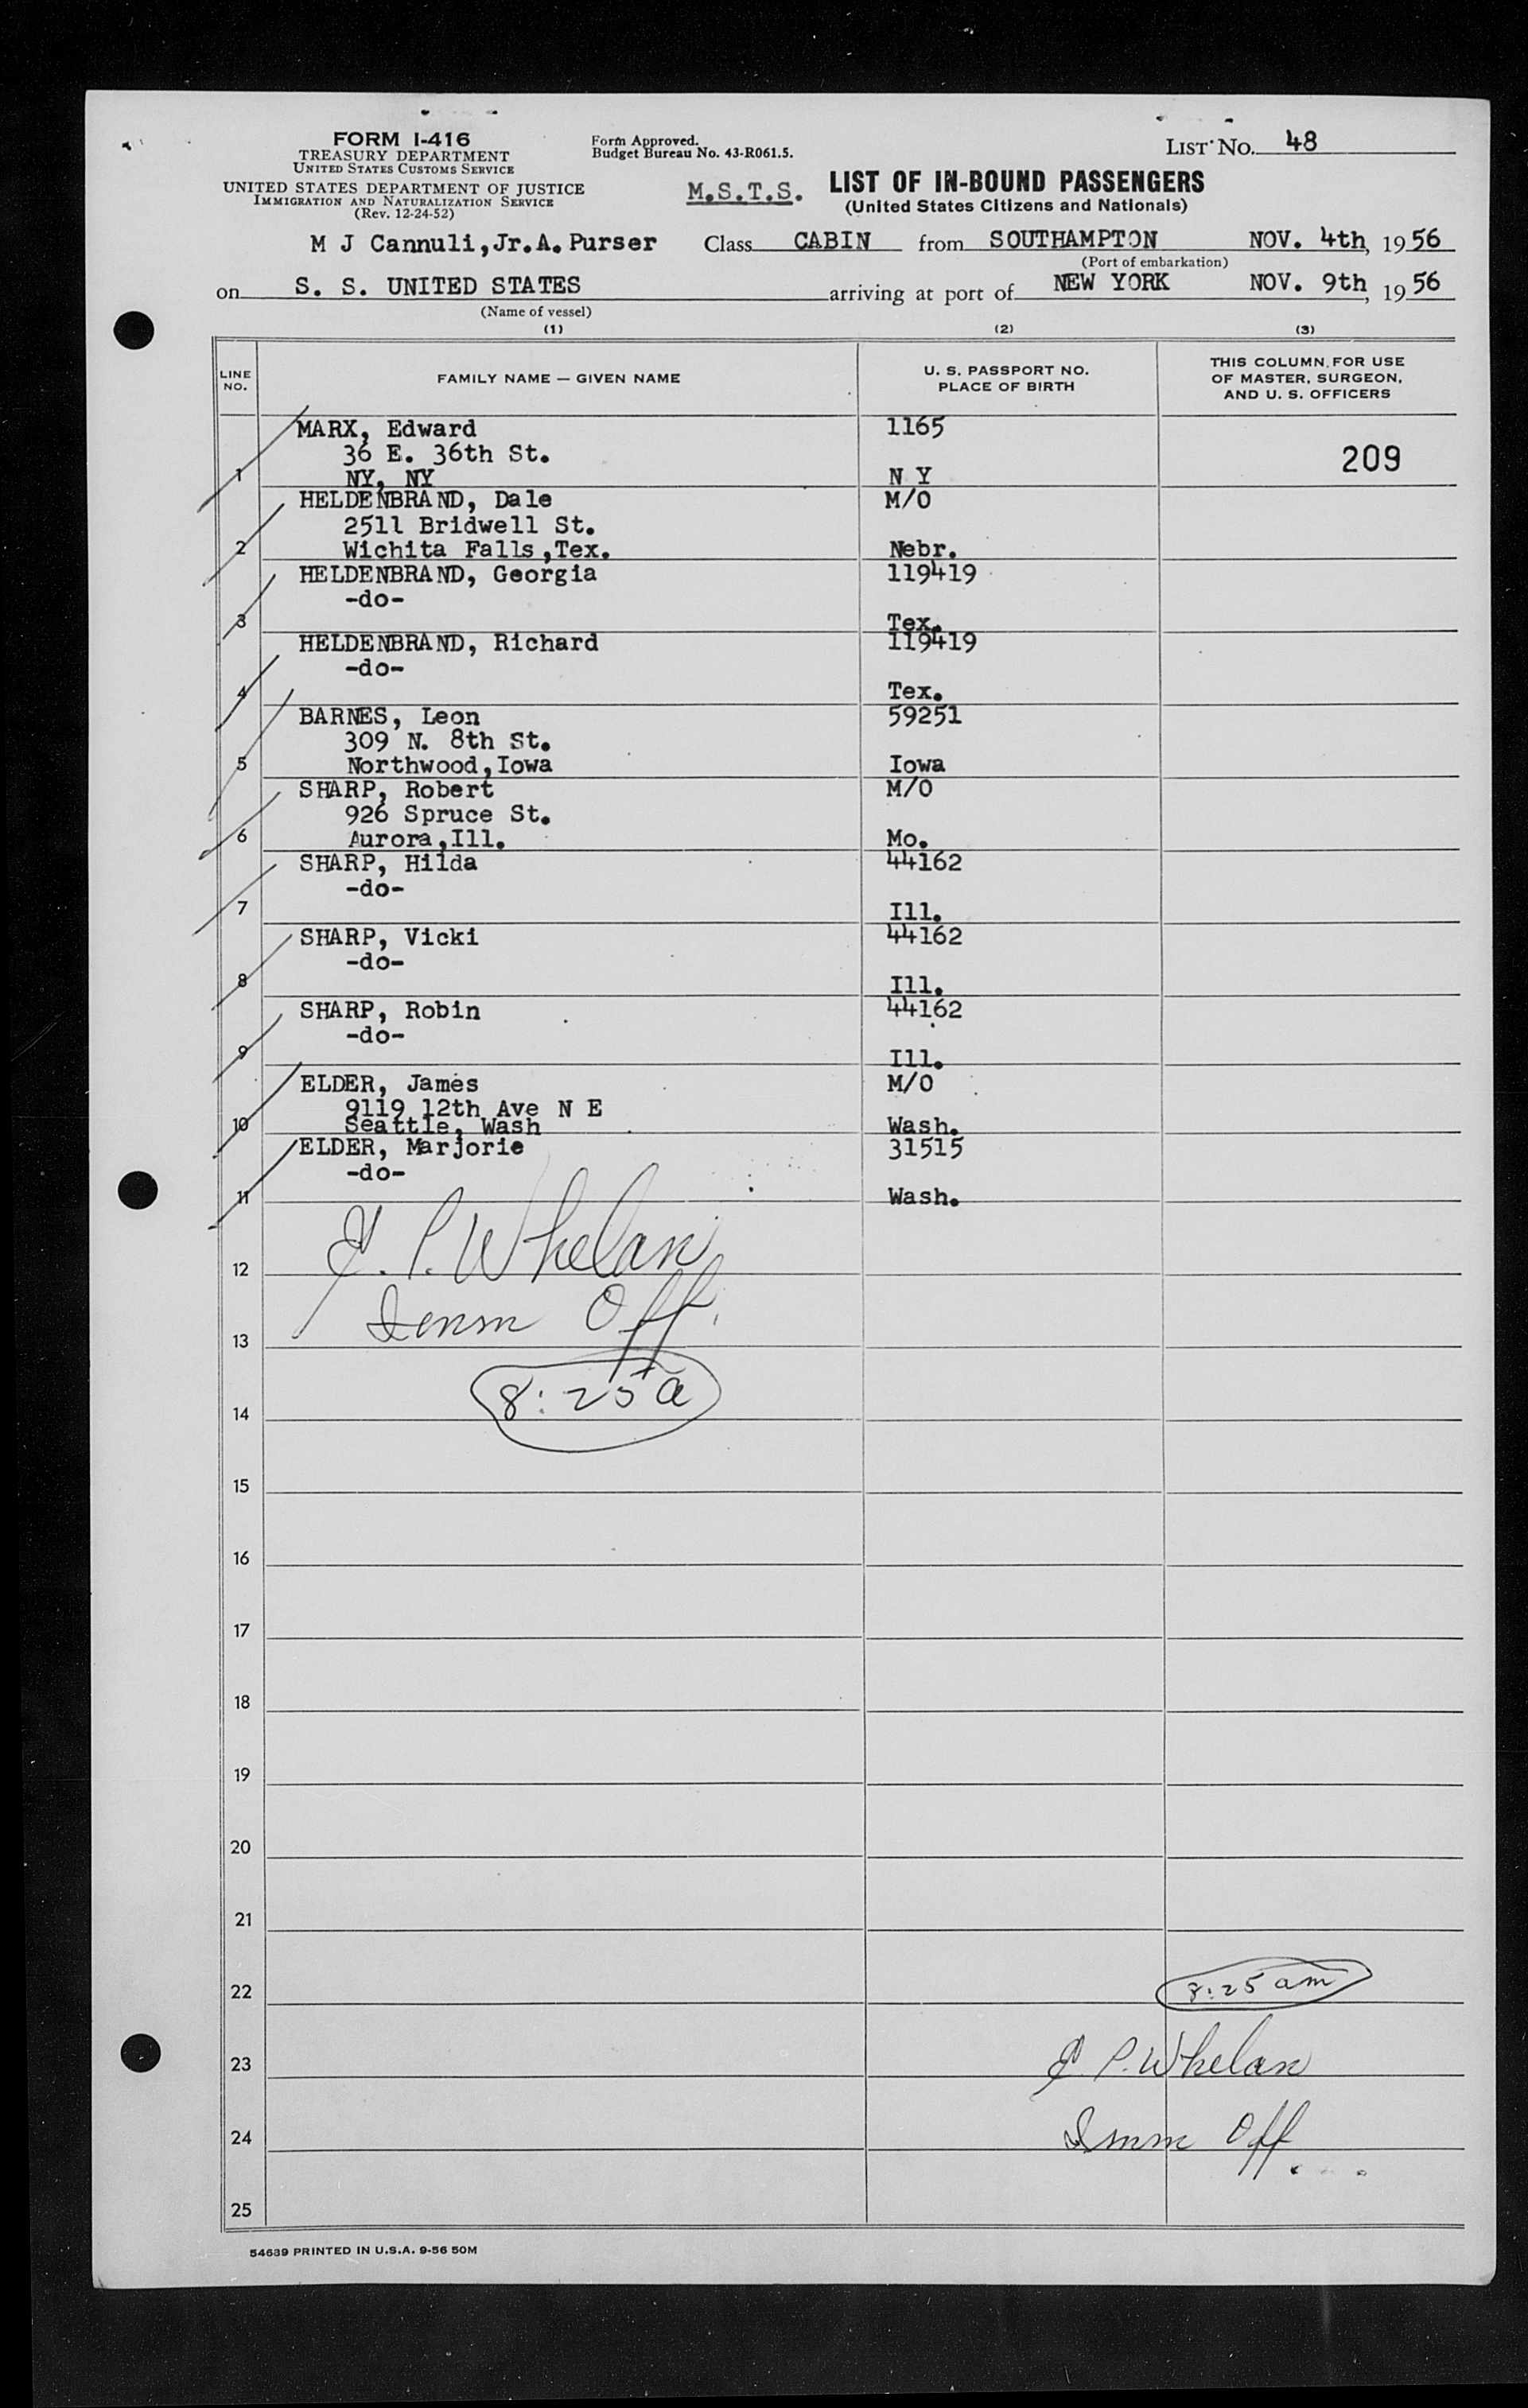 FORM I-416
TREASURY DEPARTMENT
UNITED STATES CUSTOMS SERVICE
UNITED STATES DEPARTMENT OF JUSTICE
IMMIGRATION AND NATURALIZATION SERVICE
(Rev. 12-24-52)
Form Approved.
Budget Bureau No. 43-R061.5.
LIST No. 48
M.S.T.S. LIST OF IN-BOUND PASSENGERS
(United States Citizens and Nationals)
M J Cannuli,Jr.A. Purser Class CABIN from SOUTHAMPTON NOV. 4th, 1956
(Port of embarkation)
on S. S. UNITED STATES arriving at port of NEW YORK NOV. 9th, 1956
(Name of vessel)
(1) (2) (3)
LINE NO. FAMILY NAME — GIVEN NAME U. S. PASSPORT NO. PLACE OF BIRTH THIS COLUMN FOR USE OF MASTER, SURGEON, AND U. S. OFFICERS
MARX, Edward 1165
36 E. 36th St. 209
1 NY, NY N Y
HELDENBRAND, Dale M/O
2511 Bridwell St.
2 Wichita Falls,Tex. Nebr.
HELDENBRAND, Georgia 119419
-do-
3 Tex.
HELDENBRAND, Richard 119419
-do-
4 Tex.
BARNES, Leon 59251
309 N. 8th St.
5 Northwood,Iowa Iowa
SHARP, Robert M/O
926 Spruce St.
6 Aurora,Ill. Mo.
SHARP, Hilda 44162
-do-
7 Ill.
SHARP, Vicki 44162
-do-
8 Ill.
SHARP, Robin 44162
-do-
9 Ill.
ELDER, James M/O
9119 12th Ave N E
10 Seattle, Wash Wash.
ELDER, Marjorie 31515
-do-
11 Wash.
12 P. Whelan
13 Imm Off.
14 8:25 a
15
16
17
18
19
20
21
22 8:25 am
23 P. Whelan
24 Imm Off.
25
54689 PRINTED IN U.S.A. 9-56 50M